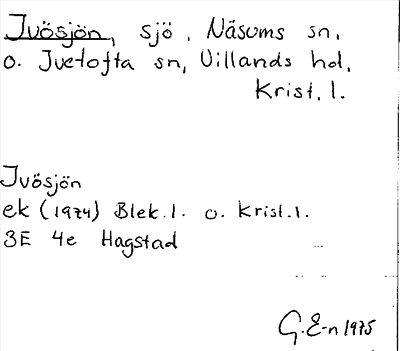 Ivösjön, sjö, Näsums sn,
o. Ivetofta sn, Villands hd,
Krist. l.
Ivösjön
ek (1974) Blek. l. o. Krist. l.
3E 4e Hagstad
G. E-n 1975